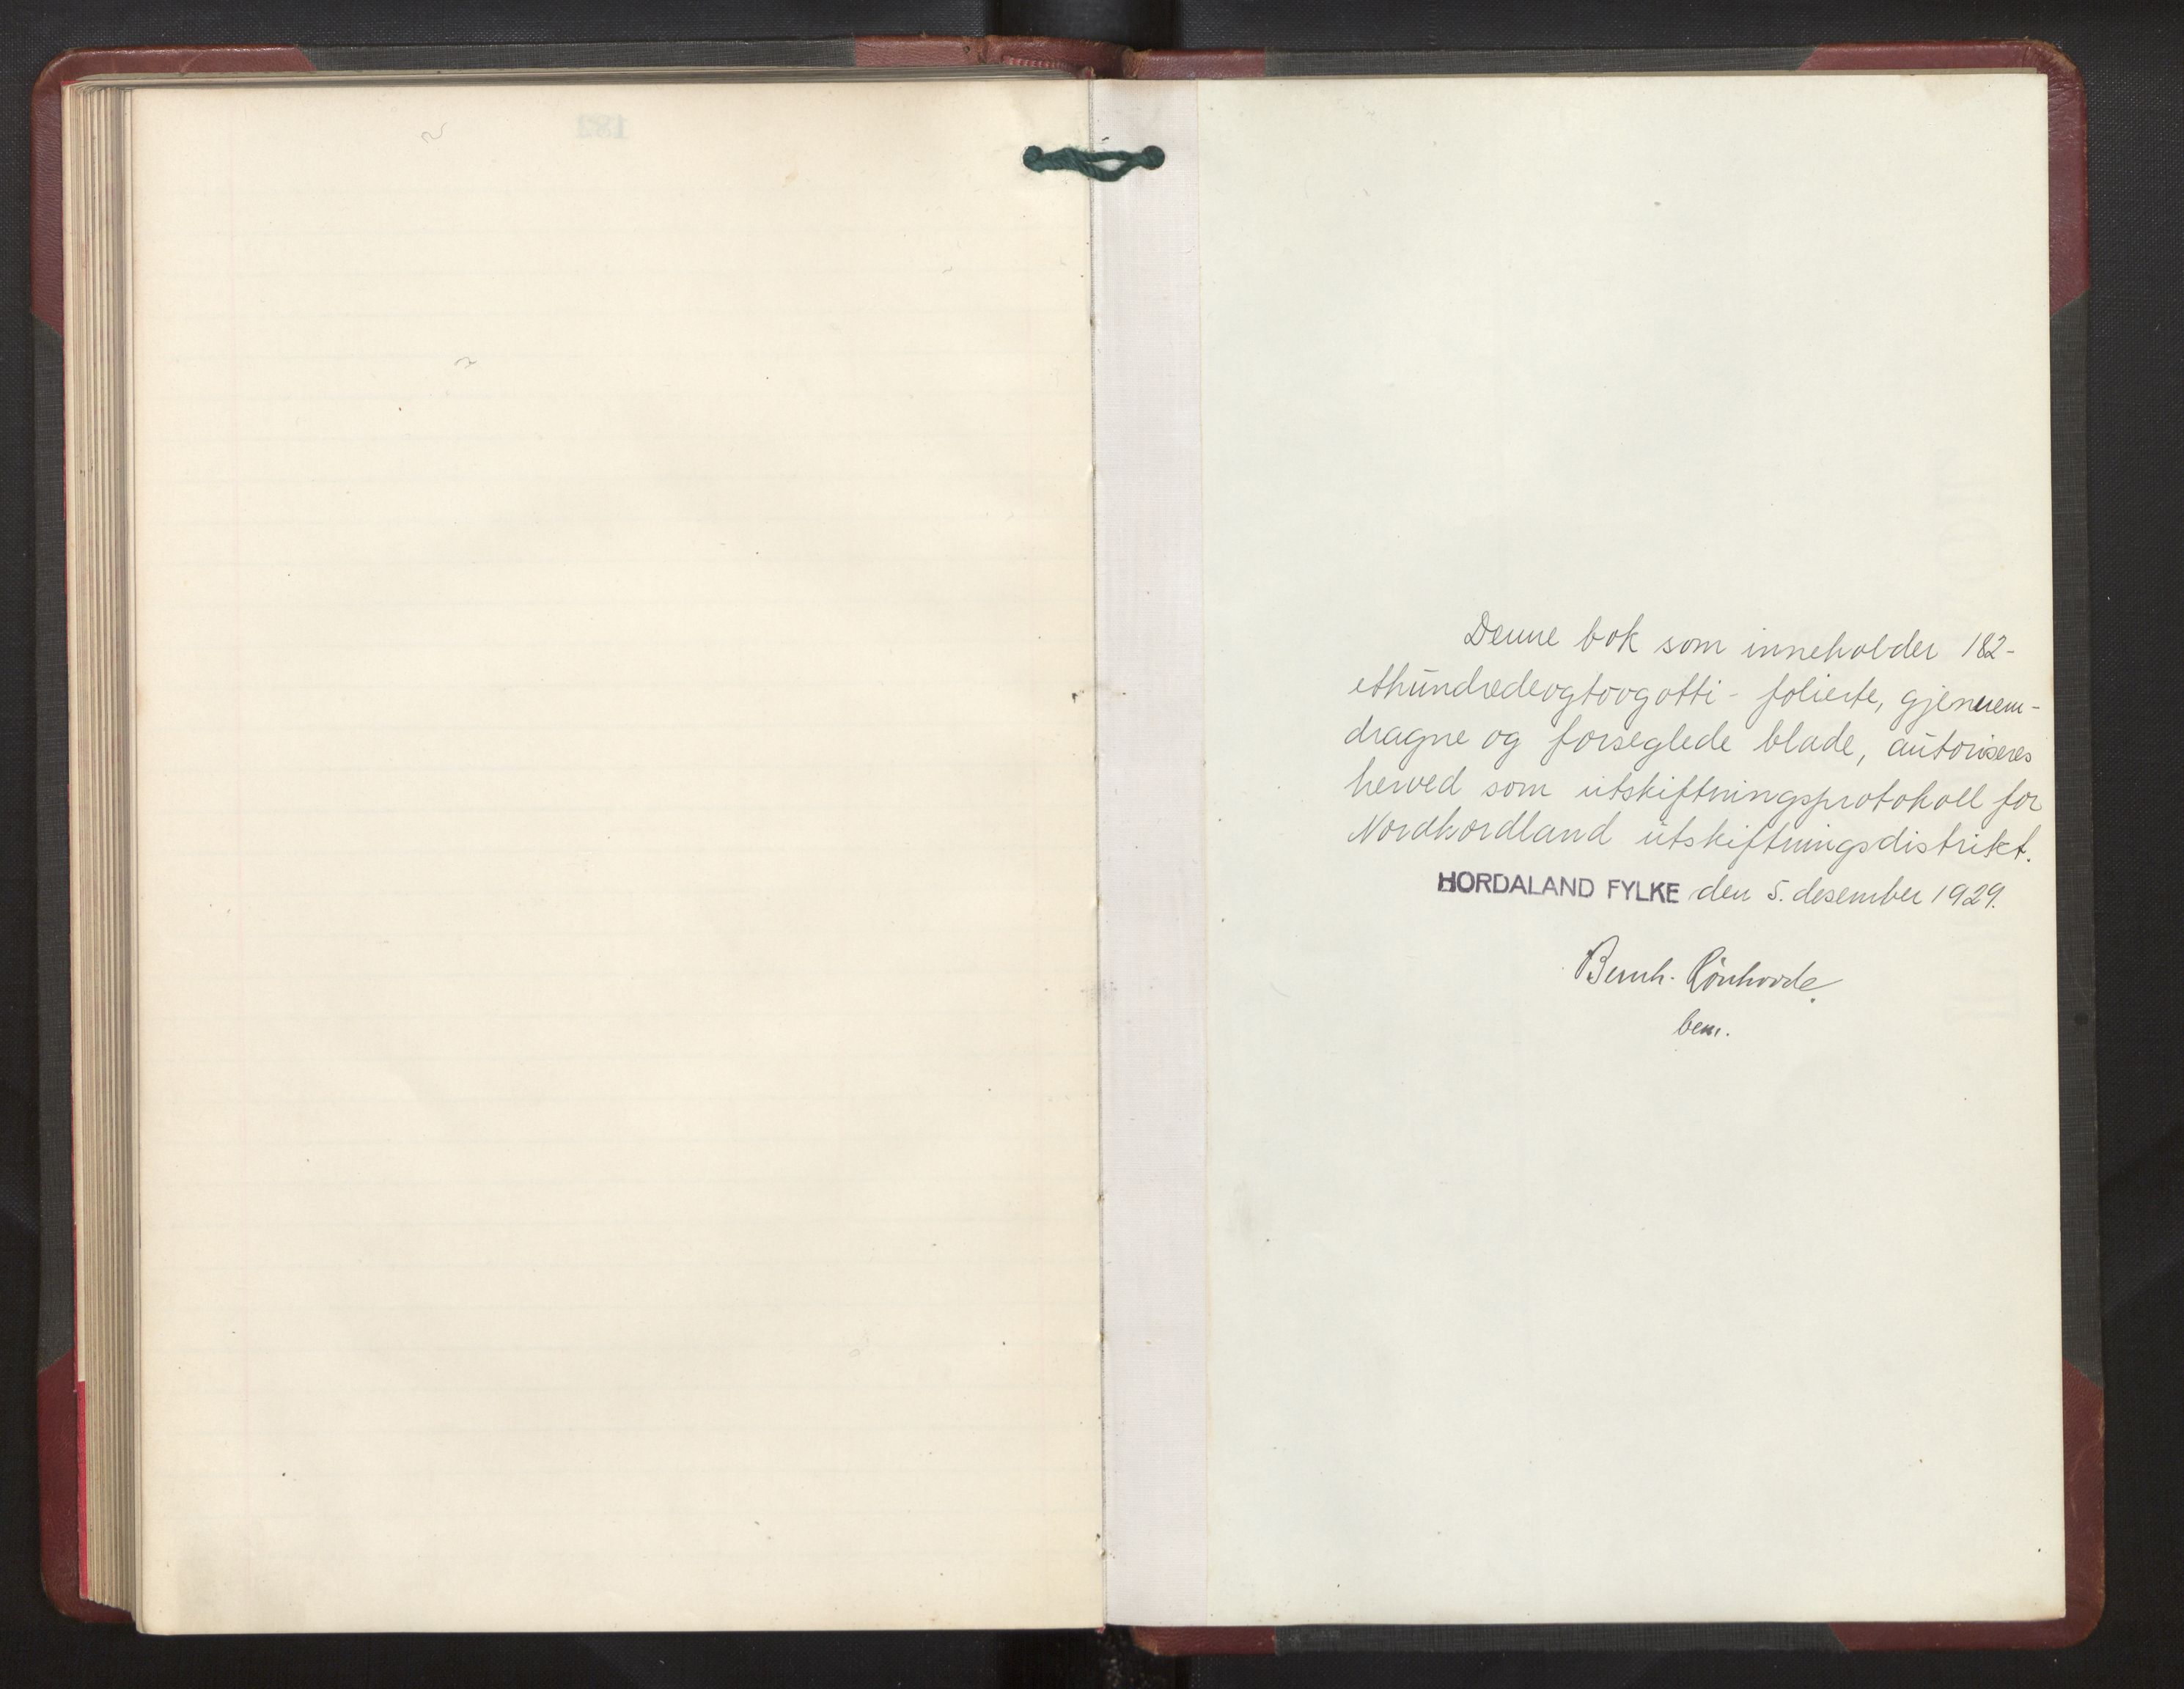 182
Denne bok som inneholder 182-
ethundredeogtoogotti- folierte, gjennem-
dragne og forseglede blade, autoriseres
herved som utskiftningsprotokoll for
Nordhordland utskiftningsdistrikt.
HORDALAND FYLKE den 5. desember 1929.
Bernh.
bem.